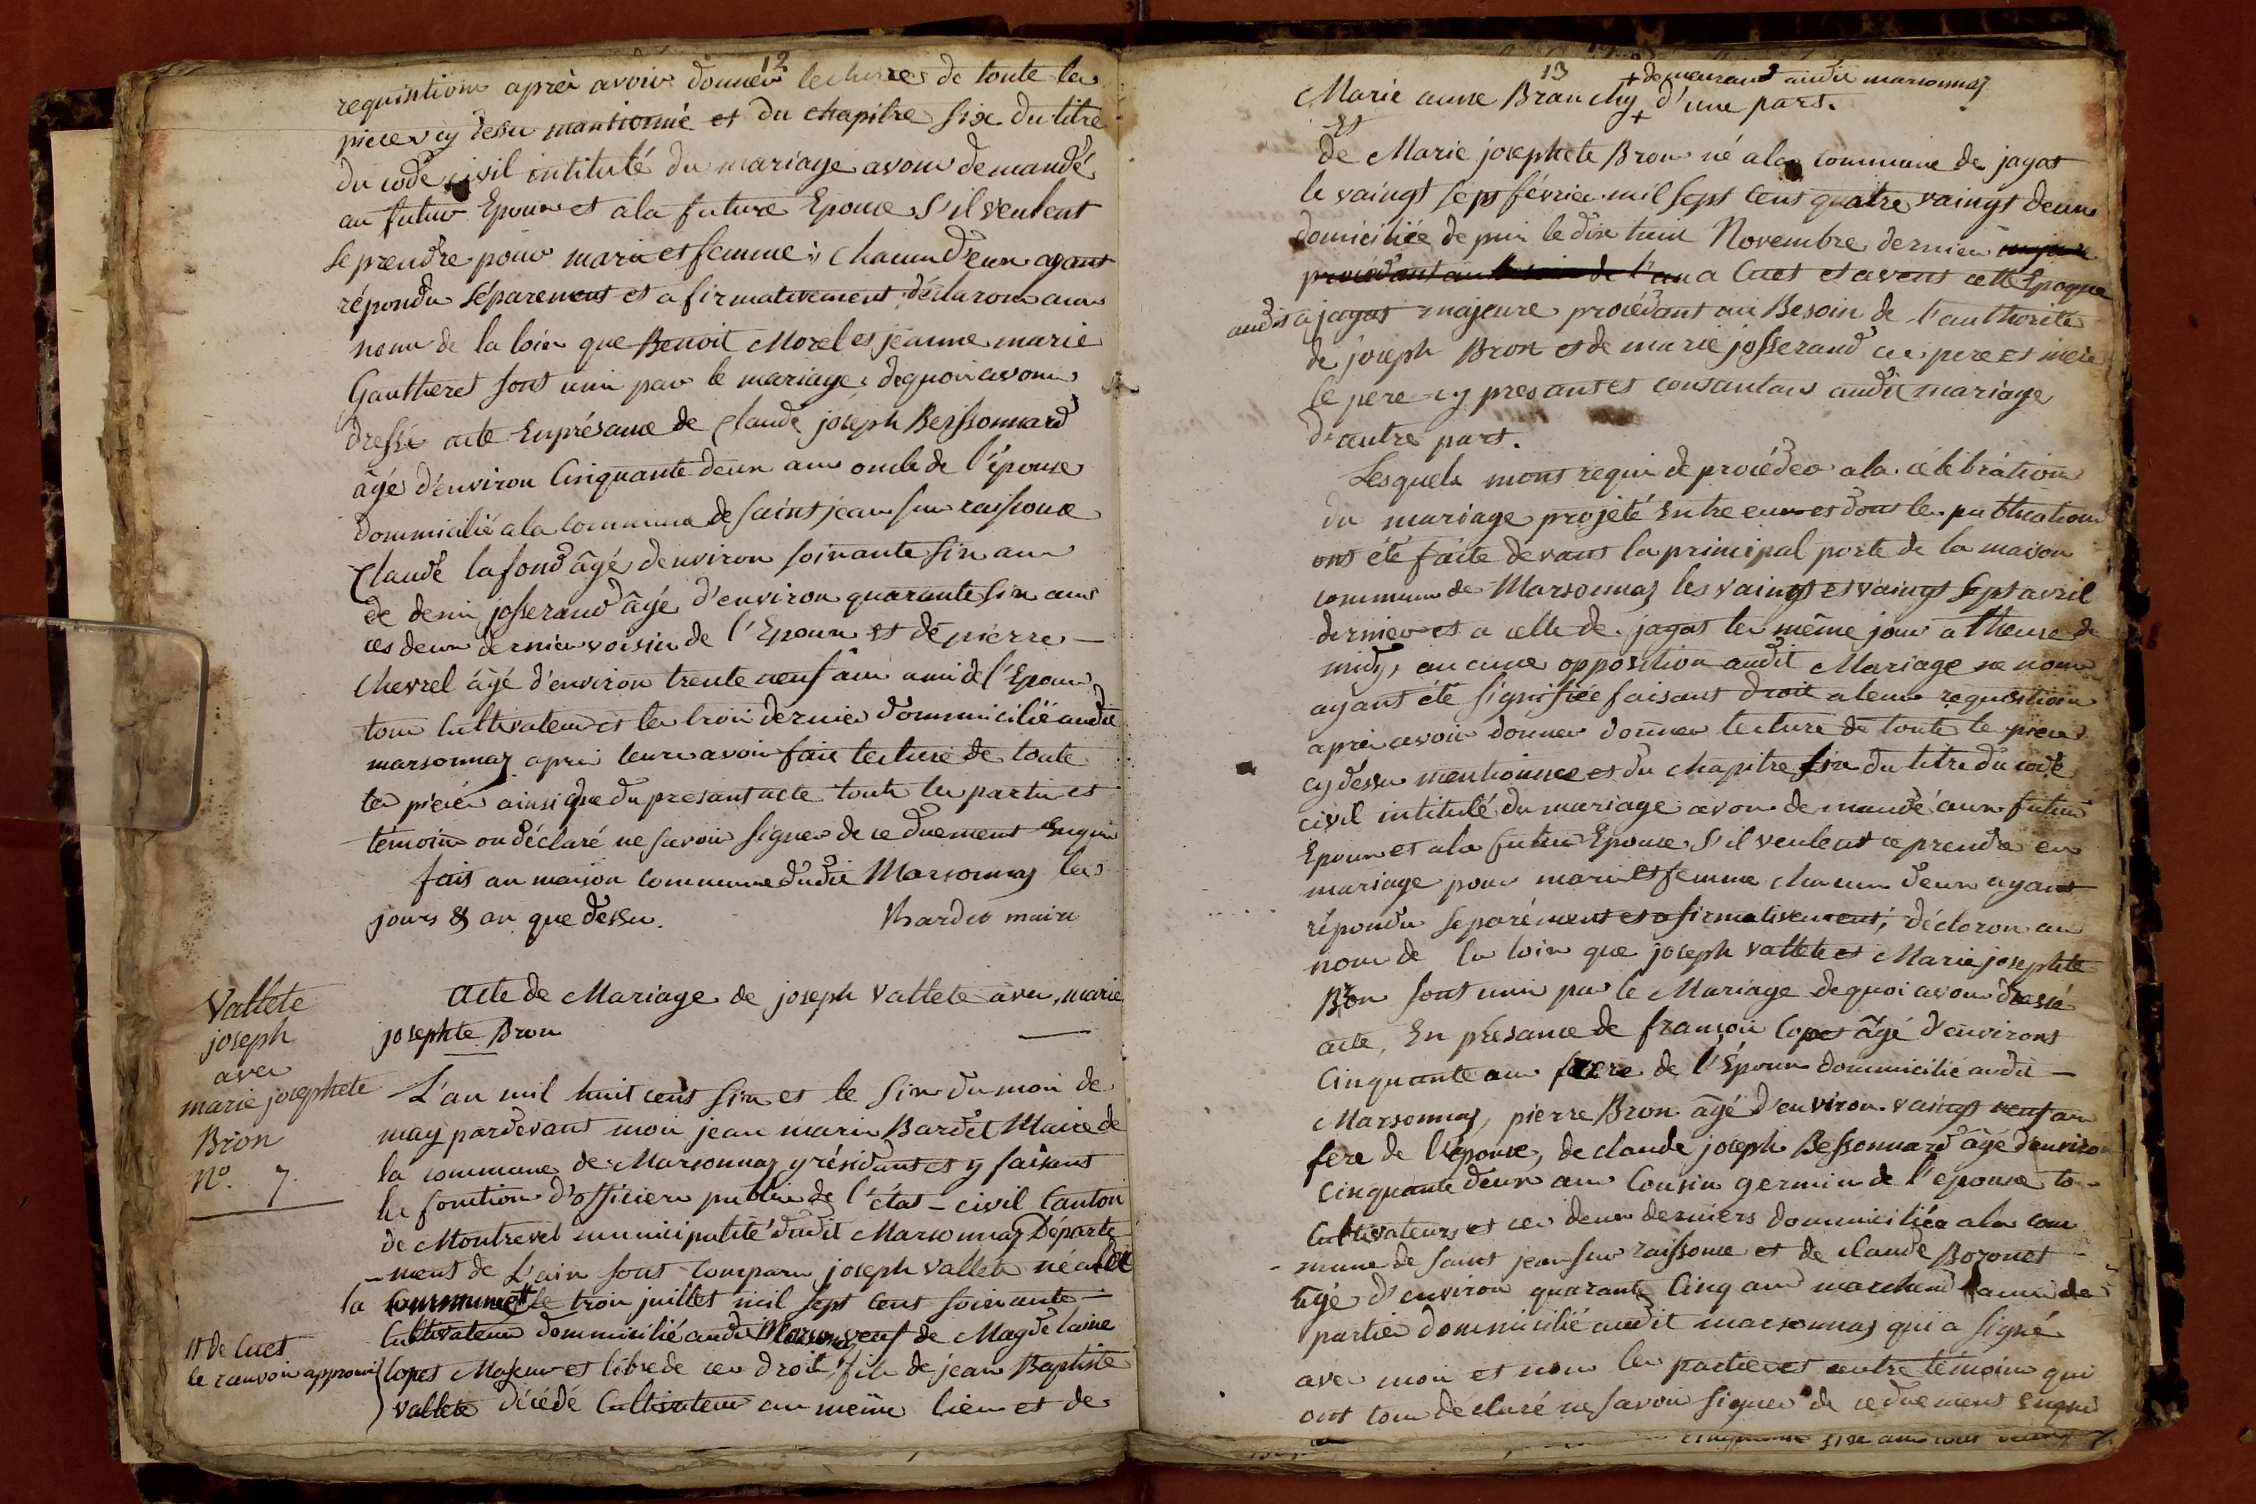 12
requisition après avoir donner lecture de toute les
piece cy dessu mantionné et du chapitre six du titre
du code civil intitulé du mariage avons demandé
au futur Epoux et a la future Epouse s'il veulent
se prendre pour marie et femme; chacun d'eux ayant
répondu séparement et afirmativement déclarons aux
nom de la loix que Benoit Morel et jeanne marie
Gautheret sont unis par le mariage, dequoi avons
dressé acte En présance de Claude joseph Beissonnard
âgé d'environ Cinquante deux ans oncle de l'épouse
dommicilié a la commune de saint jean sur raissouse
Claude lafond âgé denviron soixante six ans
de deni josserand âgé d'environ quarante six ans
ces deux dernier voisin de l'Epoux et de pierre
Chevrel âgé d'environ trente neuf ans ami de l'Epoux
tous Cultivateur et les trois dernier dommicilié audit
marsonnaz après leurs avoir fait lecture de toute
les pieces ainsi que du presant acte toute les partie et
témoins on déclaré ne savoir signer de ce duement Enquis
fait au maison commune dudit Marsonnaz les
jours & an que dessu. Bardet maire
Vallete
joseph
avec
marie josephete
Bron
N°. 7.
acte de Mariage de joseph vallete avec marie
josephte Bron
L'an mil huit cent six et le six du moi de
may pardevant moi jean marie Bardet Maire de
la commune de Marsonnaz y résidant et y faisant
les fonction d'officier public de l'état-civil Canton
de Montrevel municipalité dudit Marsonnaz Départe
-ment de L'ain sont comparu joseph vallete né a
la commune # le trois juillet mil sept cent soixante
# de Cuet
le ranvoir approuvé
Cultivateur dommicilié audit Marsonnaz veuf de Magdelaine
Copet Majeur et libre de ces droit, fils de jean Baptiste
vallete décédé Cultivateur au même lieu et de
13
+ demeurant audit marsonnaz
Marie anne Branchy + d'une part.
Et
de Marie josephete Bron né a la commune de jayat
le vaingt sept février mil sept cent quatre vaingt deux
domiciliée depui le dix huit Novembre dernier
de l'au a Cuet et avent cette Epoque
audit a jayat majeure procédant au Besoin de l'authorité
de joseph Bron et de marie josserand ces pere et mere
le pere cy presant et consantant audit mariage
d'autre part.
Lesquels mont requi de procéder a la célébration
du mariage projeté Entre eux et dont les publication
ont été faite devant la principal porte de la maison
commune de Marsonnaz les vaingt et vaingt sept avril
dernier et a celle de jayat les même jour a l'heure de
midy, aucune opposition audit Mariage ne nous
ayant été signifiée faisant droit a leur requisition
après avoir donner donner lecture de toute le piece
cy dessu mentionnee et du chapitre six du titre du code
civil intitulé du mariage avons demandé aux futur
Epoux et a la futur Epouse s'il veulent ce prendre en
mariage pour mari et femme chacun d'eux ayant
répondu separément et afirmativement, décloron au
nom de la loix que joseph vallete et Marie josephte
Bron sont unis par le Mariage dequoi avons dressé
acte, En présance de françois Copet âgé d'environt
Cinquante ans frere de l'Epoux dommicilié audit
Marsonnaz, pierre Bron âgé d'environ vaingt neuf an
fere de l'épouse, de claude joseph Bessonnard âgé d'environ
Cinquante deux ans Cousin germin de l'epouse to-
Cultivateurs et ces deux derniers dommiciliée a la com
-mune de saint jean sur raissouse et de claude Boronet
âgé d'environ quarante Cinq ans marchand ami de
partie dommicilié audit marsonnaz qui a signé
avec moi et non les partie et autre témoins qui
ont tous déclaré ne savoir signer de ce duement Enquis